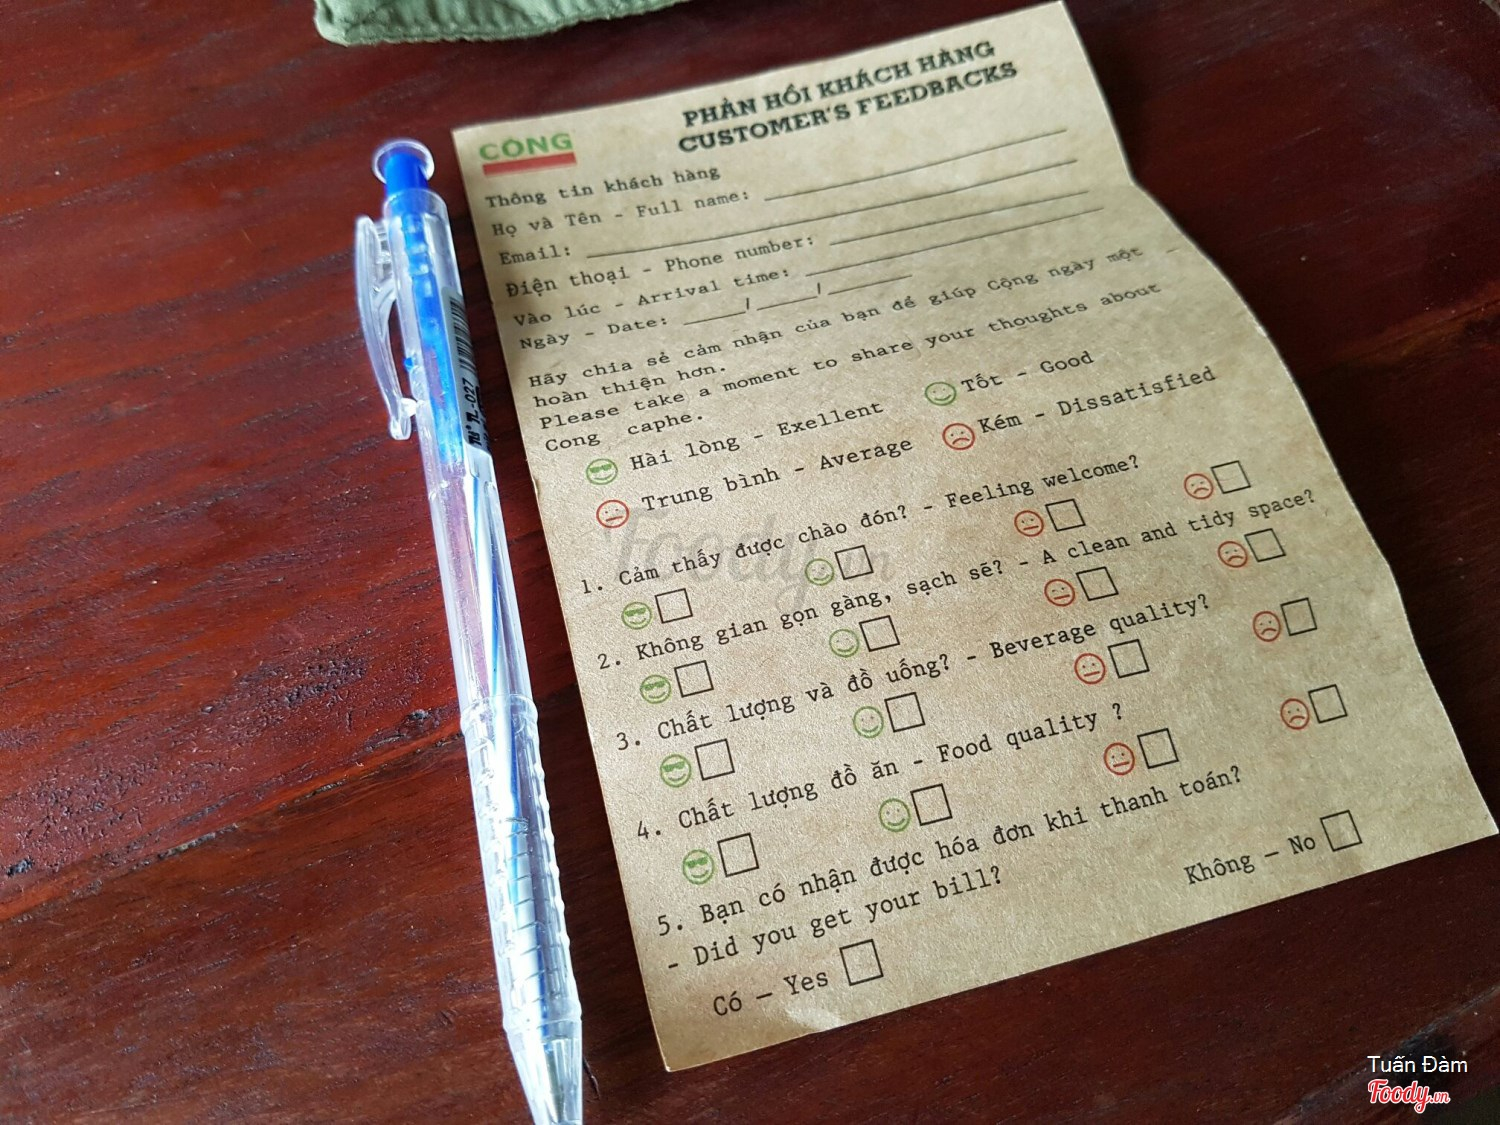 PHẢN HỒI KHÁCH HÀNG
CUSTOMER'S FEEDBACKS
CỘNG
Thông tin khách hàng
Họ và Tên - Full name:
Email:
Điện thoại - Phone number:
Vào lúc - Arrival time:
Ngày - Date: / /
Hãy chia sẻ cảm nhận của bạn để giúp Cộng ngày một
hoàn thiện hơn.
Please take a moment to share your thoughts about
Cong caphe.
Hài lòng - Exellent Tốt - Good
Trung bình - Average Kém - Dissatisfied
1. Cảm thấy được chào đón? - Feeling welcome?
2. Không gian gọn gàng, sạch sẽ? - A clean and tidy space?
3. Chất lượng và đồ uống? - Beverage quality?
4. Chất lượng đồ ăn - Food quality ?
5. Bạn có nhận được hóa đơn khi thanh toán?
- Did you get your bill?
Có – Yes Không – No
TL-027
Foody.vn
Tuấn Đàm
Foody.vn